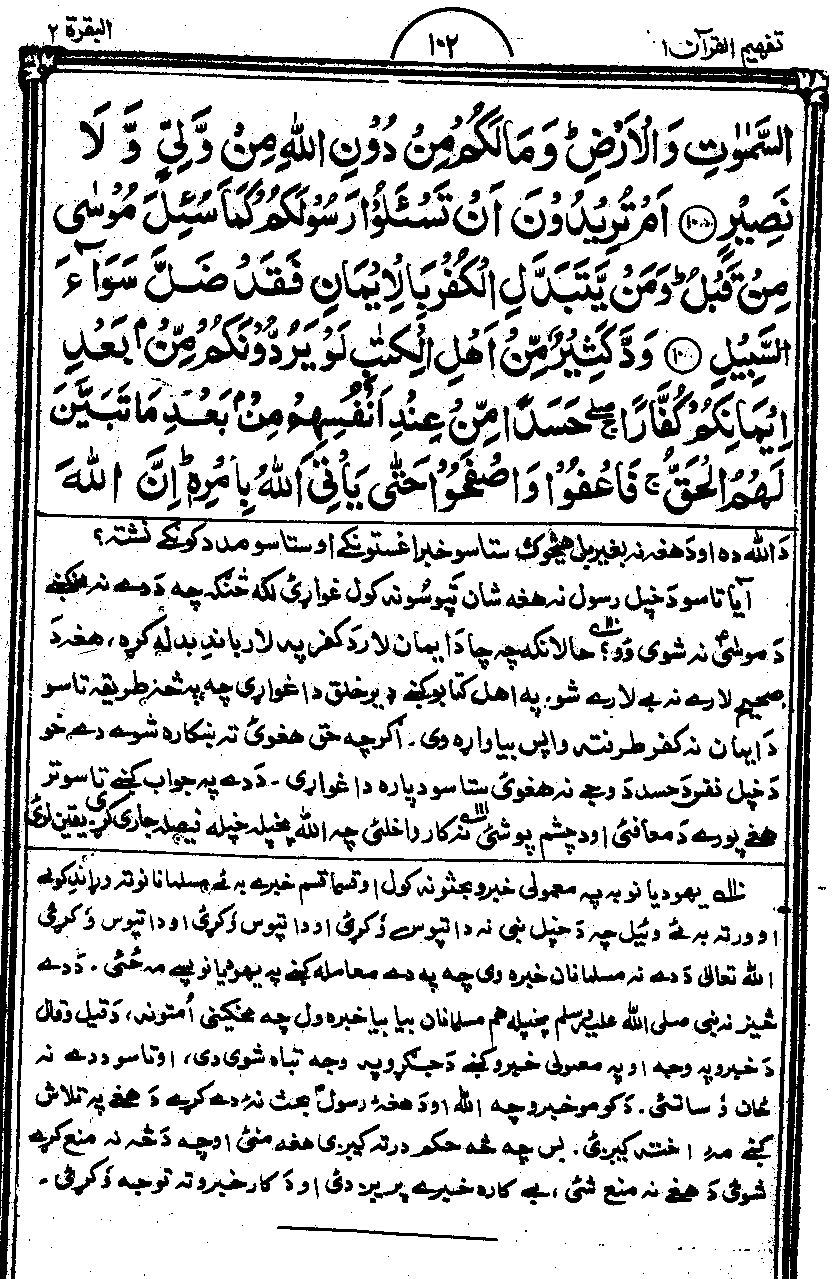 تفهیم القرآن ۱
۱۰۲
البقرة ۲
السَّمٰوٰتِ وَالْاَرْضِ ؕ وَمَالَكُمْ مِنْ دُوْنِ اللّٰهِ مِنْ وَّلِيٍّ وَّلَا
نَصِيْرٍ ۝ اَمْ تُرِيْدُوْنَ اَنْ تَسْـَٔلُوْا رَسُوْلَكُمْ كَمَا سُئِلَ مُوْسٰى
مِنْ قَبْلُ ؕ وَمَنْ يَّتَبَدَّلِ الْكُفْرَ بِالْاِيْمَانِ فَقَدْ ضَلَّ سَوَآءَ
السَّبِيْلِ ۝ وَدَّ كَثِيْرٌ مِّنْ اَهْلِ الْكِتٰبِ لَوْ يَرُدُّوْنَكُمْ مِّنْۢ بَعْدِ
اِيْمَانِكُمْ كُفَّارًا ۚۖ حَسَدًا مِّنْ عِنْدِ اَنْفُسِهِمْ مِنْۢ بَعْدِ مَا تَبَيَّنَ
لَهُمُ الْحَقُّ ۚ فَاعْفُوْا وَاصْفَحُوْا حَتّٰى يَأْتِيَ اللّٰهُ بِاَمْرِهٖ ؕ اِنَّ اللّٰهَ
دَ الله ده او دَ هغه نه بغیر بل هیڅوک ستاسو خبر اغستونکے او ستاسو مدد کونکے نشته؟
آیا تاسو دَ خپل رسول نه هغه شان تپوسونه کول غواړئ لکه څنګه چه دَ دے نه مخکښے
دَ موسٰیؑ نه شوی وُو؟ حالانکه چه چا دَ ایمان لار دَ کفر په لار باندے بدله کړه، هغه دَ
صحیح لارے نه بے لارے شو. په اهل کتابو کښے ډیر خلق دا غواړی چه په څه طریقه تاسو
دَ ایمان نه کفر طرف ته واپس بیا واړه وی. اګرچه حق هغوئ ته ښکاره شوے دے خو
دَ خپل نفس دَ حسد دَ وجے نه هغوئ ستاسو دپاره دا غواړی. دَ دے په جواب کښے تاسو تر
هغے پورے دَ معافئ او د چشم پوشئ نه کار واخلئ چه الله پخپله خپله فیصله جاری کړی. یقین لرئ
یهودیانو به په معمولی خبرو بحثونه کول او قسما قسم خبرے به ئے مسلمانانو ته وړاندے کولے
او ورته به ئے وئیل چه دَ خپل نبی نه دا تپوسے وَکړئ او دا تپوس وَکړئ او دا تپوس وَکړئ
الله تعالی دَ دے نه مسلمانان خبره وی چه په دے معامله کښے په یهودیانو پسے مه ځئی. دَ دے
څیز نه نبی صلی الله علیه وسلم پخپله هم مسلمانان بیا بیا خبره ول چه مخکینی اُمتونه، دَ قیل و قال
دَ خبرو په وجه او په معمولی خبرو کښے دَ جګړو په وجه تباه شوی دی، او تاسو د دے نه
ځان وَ ساتئی. دَ کومو خبرو چه الله او دَ هغهٔ رسولؐ بحث نهٔ دے کړے دَ هغے په تلاش
کښے مه اخته کیږئ. بس چه څه حکم درته کیږی هغه منئ او چه دَ څه نه منع کړے
شوئ دَ هغے نه منع شئ، بے کاره خبرے پریږدئ او دَ کار خبرو ته توجه وَکړئ.